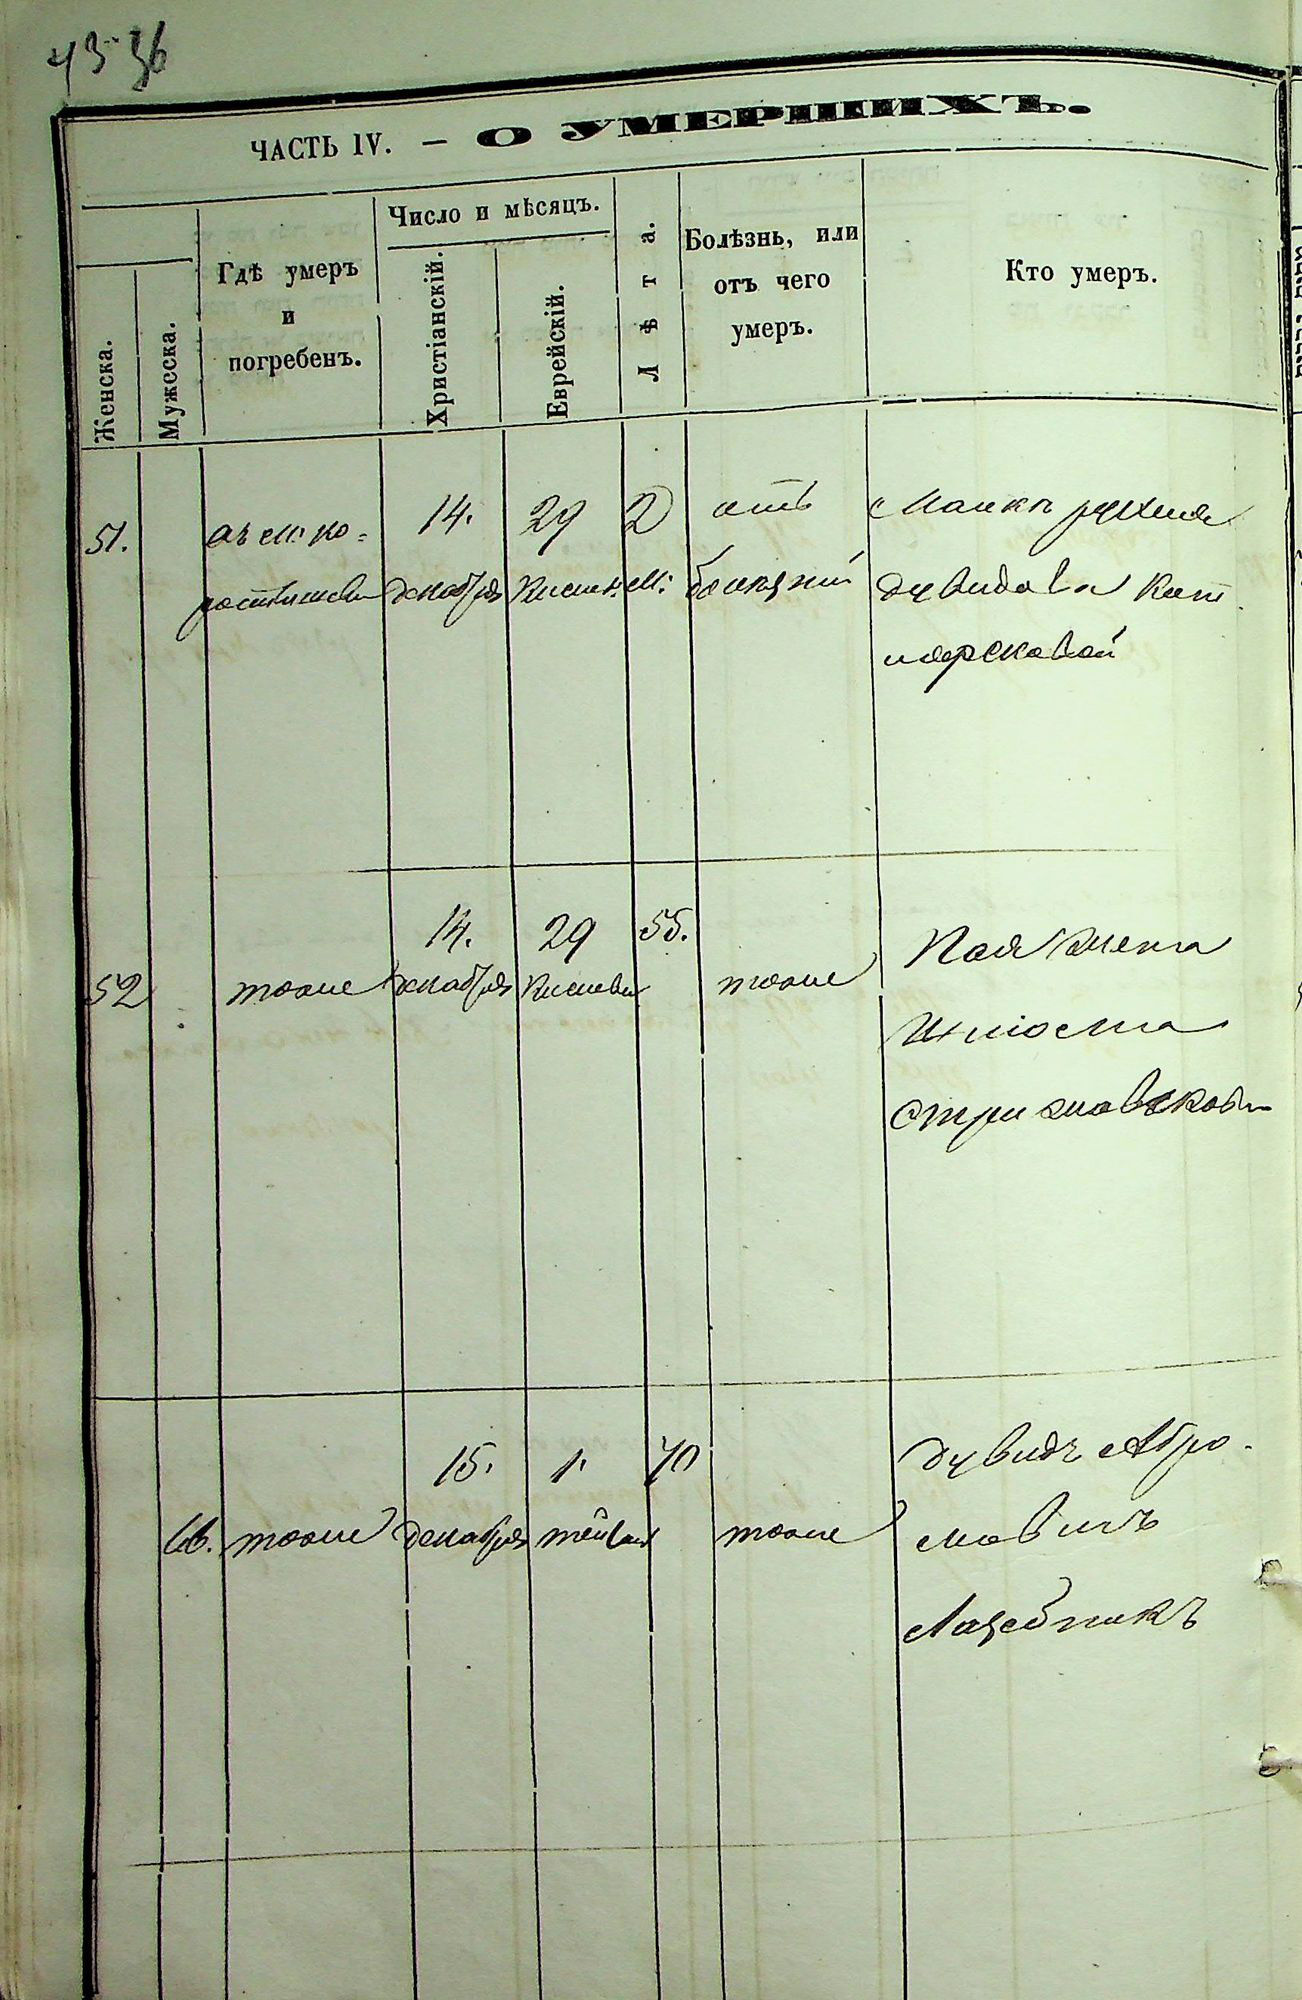 43 36
ЧАСТЬ IV. — О УМЕРШИХЪ.
Женска.
Мужеска.
Гдѣ умеръ
и
погребенъ.
Число и мѣсяцъ.
Христіанскій.
Еврейскій.
Лѣта.
Болѣзнь, или
отъ чего
умеръ.
Кто умеръ.
51.
въ м: Ко=
ростышевѣ
14.
декабря
29
Кислев:
2
м:
отъ
болѣзни
Малка рухля
дувидова Кат
иарсковой
52
тоже
14.
декабря
29
Кислева
55.
тоже
Пая жена
Ихиосла
Стрижавскова
66.
тоже
15.
декабря
1.
тейвея
70
тоже
дувидъ Абро-
мовичъ
Лазебникъ